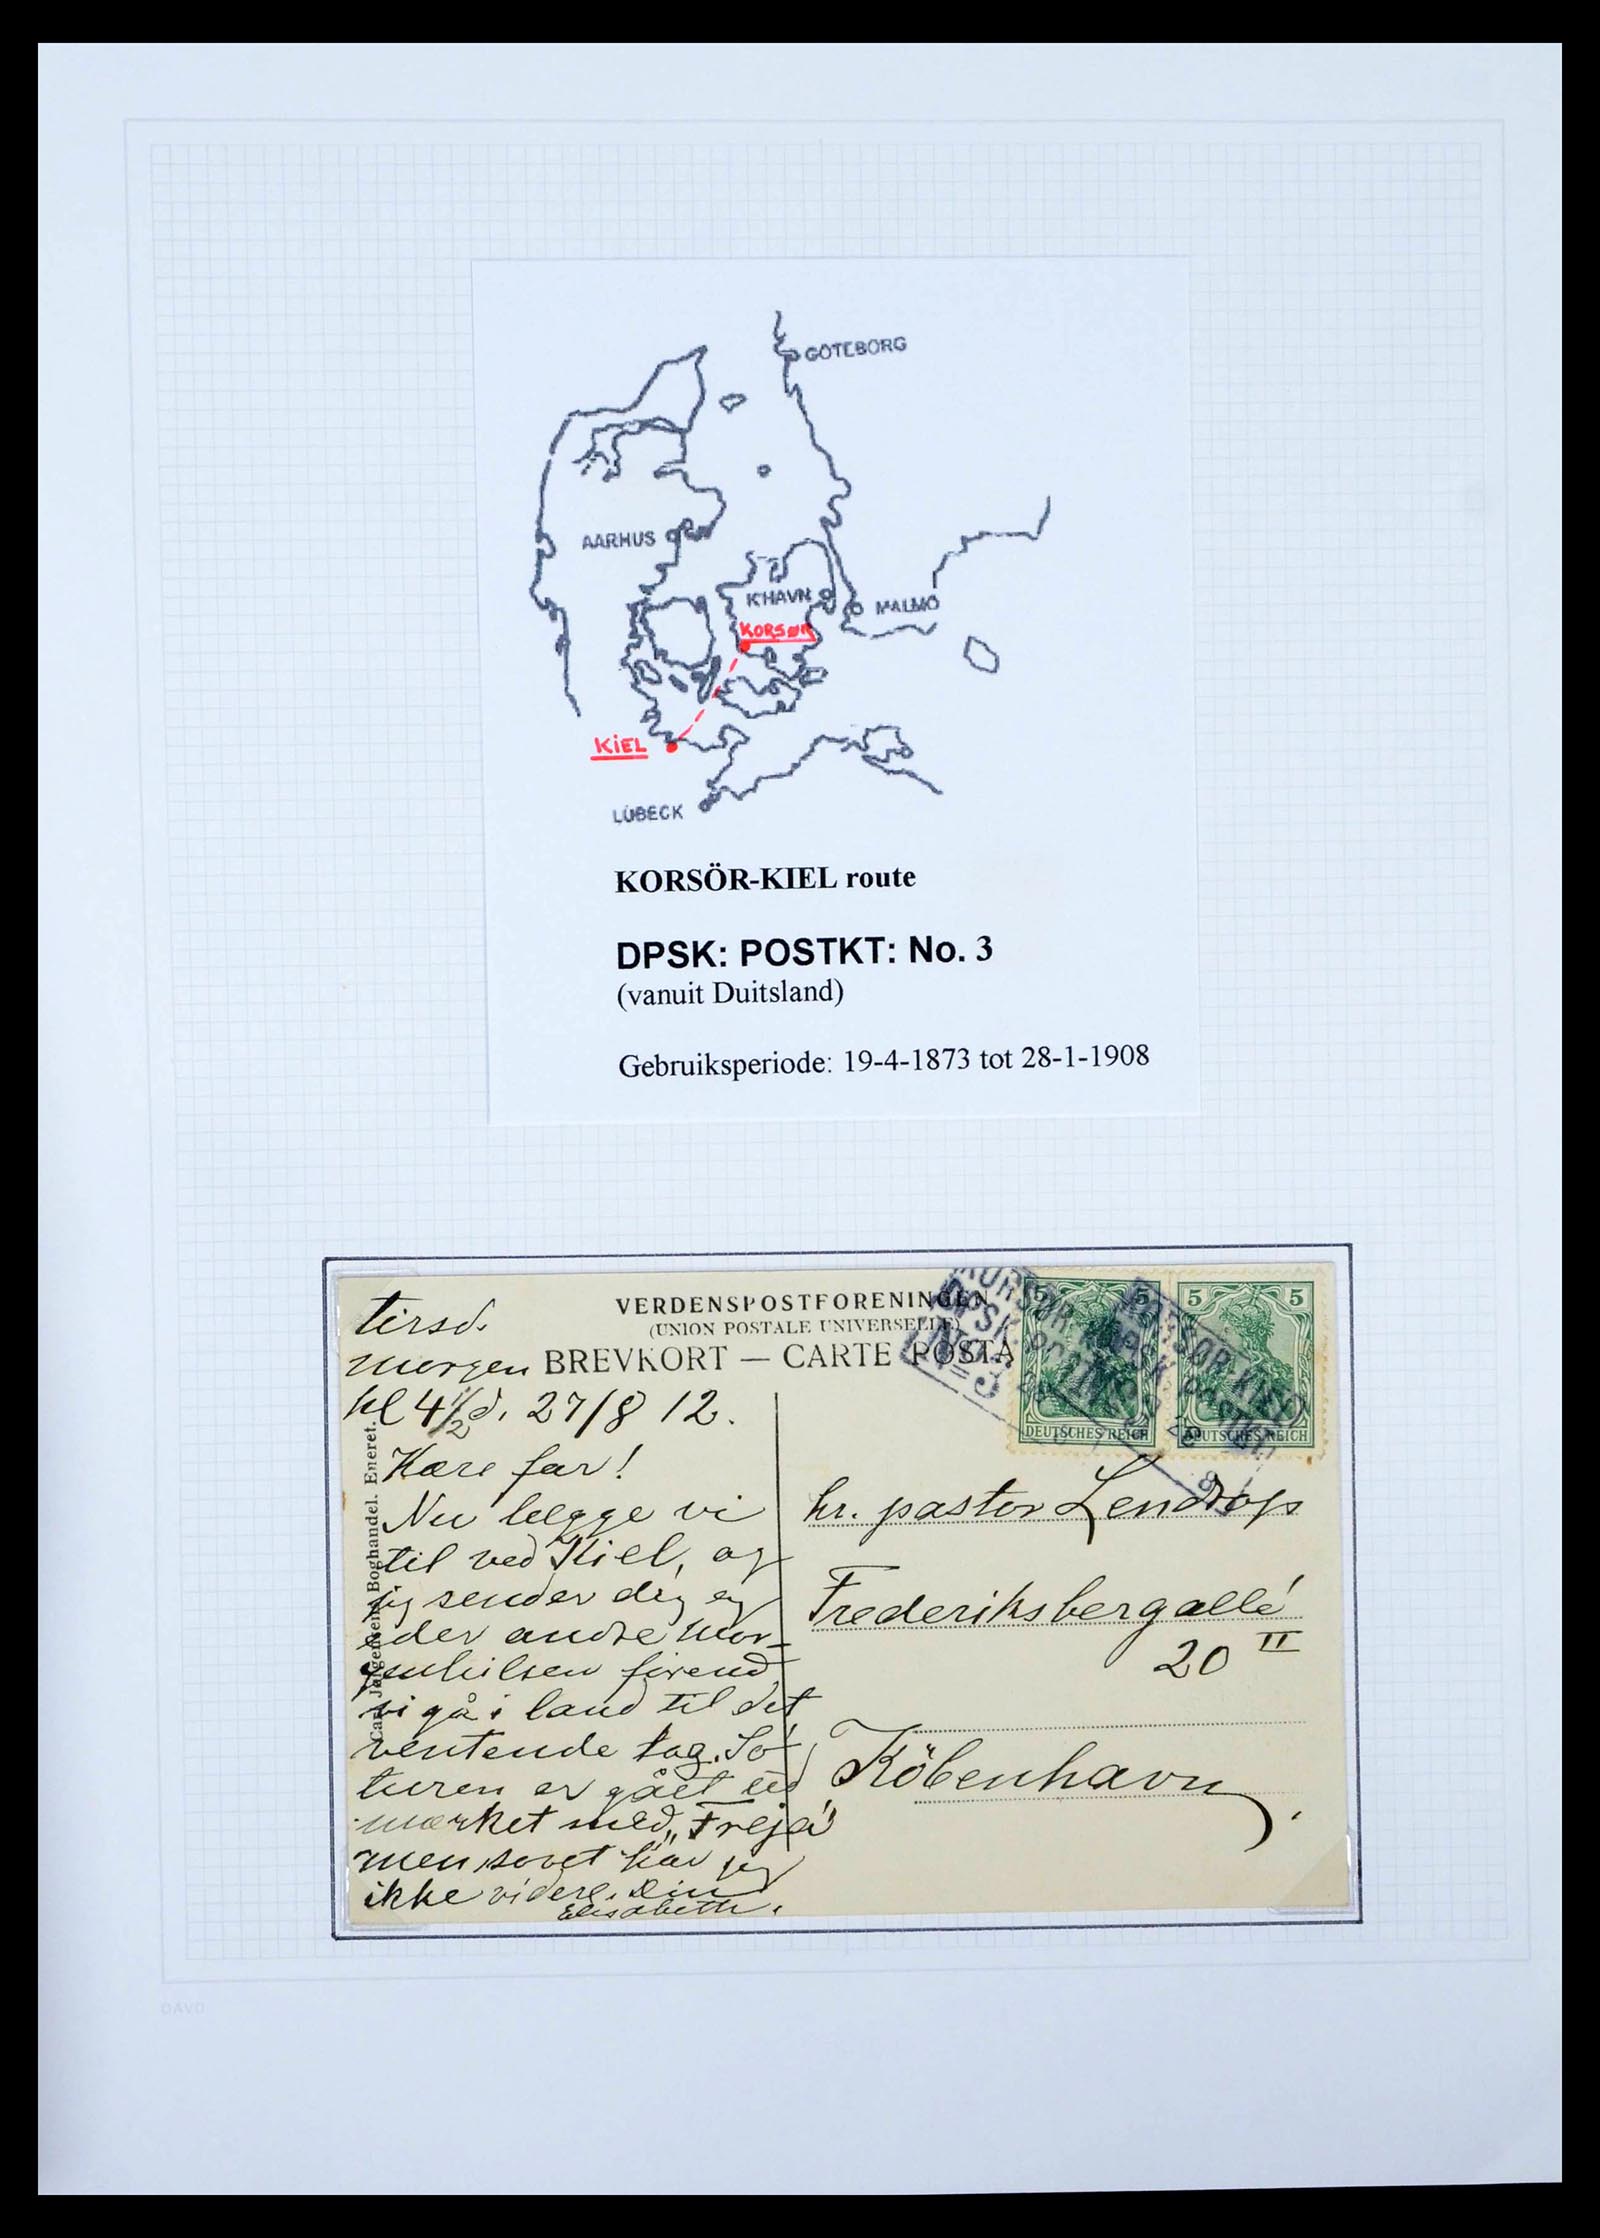 GÖTEBORG
AARHUS
K'HAVN
MALMÖ
KORSØR
KiEL
LÜBECK
KORSÖR-KIEL route
DPSK: POSTKT: No. 3
(vanuit Duitsland)
Gebruiksperiode: 19-4-1873 tot 28-1-1908
VERDENSPOSTFORENINGEN
(UNION POSTALE UNIVERSELLE)
BREVKORT — CARTE POSTA
5 5
5 5
DEUTSCHES REICH
DEUTSCHES REICH
KORSØR-KIEL
DPSK: POSTKT:
No 3
tirsd.
morgen
kl 4½ d. 27/8 12.
Kære far!
Nu lægge vi
til ved Kiel, og
jeg sender dig en
eder andre mor-
genhilsen førend
vi gå i land til det
ventende tog. Sö-
turen er gået ud
mærket med „Freja"
men sovet har jeg
ikke videre. Din
Elisabeth.
Carl Jørgensens Boghandel. Eneret.
hr. pastor Lendrop
Frederiksbergallé
20 II
Köbenhavn.
DAVO